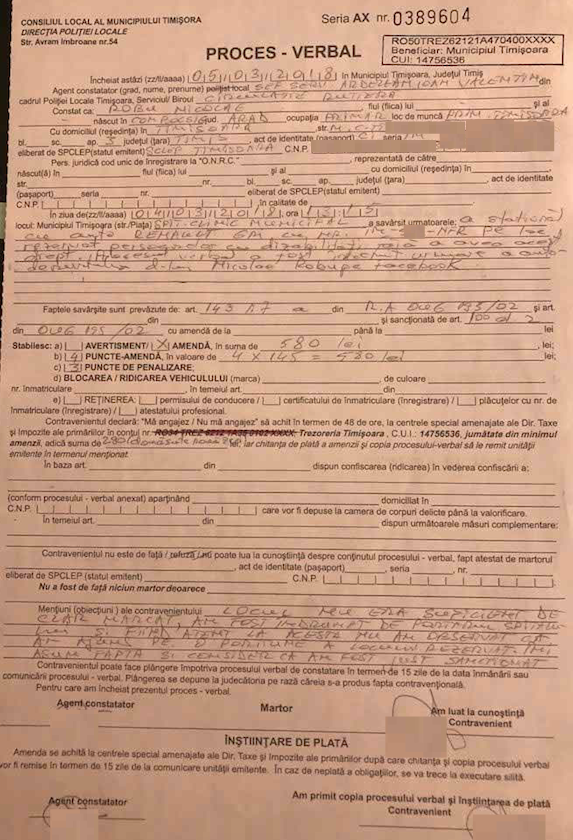 CONSILIUL LOCAL AL MUNICIPIULUI TIMIŞORA
DIRECŢIA POLIŢIEI LOCALE
Str. Avram Imbroane nr.54
Seria AX nr. 0389604
RO50TREZ62121A470400XXXX
Beneficiar: Municipiul Timişoara
CUI: 14756536
PROCES - VERBAL
Încheiat astăzi (zz/ll/aaaa) 05 03 2018 în Municipiul Timişoara, Judeţul Timiş
Agent constatator (grad, nume, prenume) poliţist local SEF SERV ARDELEAN IOAN VALENTIN din
cadrul Poliţiei Locale Timişoara, Serviciul/ Biroul CIRCULATIE RUTIERA
Constat că: ROBU NICOLAE fiul (fiica) lui şi al
născut în jud. ARAD ocupaţia PRIMAR loc de muncă PRIM. TIMISOARA
Cu domiciliul (reşedinţa) în TIMISOARA str.
bl. sc. ap. 5 judeţul (ţara) TIMIS act de identitate (paşaport) CI seria
eliberat de SPCLEP(statul emitent) SCLEP TIMISOARA C.N.P.
Pers. juridică cod unic de înregistrare la "O.N.R.C." , reprezentată de către
născut(ă) în fiul (fiica) lui şi al cu domiciliul (reşedinţa) în
str. nr. bl. sc. ap. judeţul (ţara) , act de identitate
(paşaport) seria nr. eliberat de SPCLEP (statul emitent)
C.N.P. în calitate de
În ziua de(zz/ll/aaaa) 04 03 2018, ora
locul: Municipiul Timişoara (str./Piaţa) SP. CLINIC MUNICIPAL a savârsit urmatoarele: a stationat
cu auto RENAULT cu NR. TM NFR PE loc
rezervat persoanelor cu dizabilitati fara a avea acest
drept. Procesul verbal a fost incheiat urmare a auto-
denuntului d-lui Nicolae Robu pe facebook
Faptele savârşite sunt prevăzute de: art. 143 a din R.A OUG 195/02 şi art.
din şi sancţionată de art. 100 al 2
din OUG 195/02 cu amendă de la până la lei
Stabilesc: a) AVERTISMENT/ X AMENDĂ, în suma de 580 lei lei;
b) 4 PUNCTE-AMENDĂ, în valoare de 4 X 145 = 580 lei lei;
c) 3 PUNCTE DE PENALIZARE;
d) BLOCAREA / RIDICAREA VEHICULULUI (marca) , de culoare
nr. înmatriculare , în temeiul art. din
e) REŢINEREA: permisului de conducere / certificatului de înmatriculare (înregistrare) / plăcuţelor cu nr. de
înmatriculare (înregistrare) / atestatului profesional.
Contravenientul declară: "Mă angajez / Nu mă angajez" să achit în termen de 48 de ore, la centrele special amenajate ale Dir. Taxe
şi Impozite ale primăriilor în contul nr. RO34 TREZ 6212 1A35 0102 XXXX, Trezoreria Timişoara , C.U.I.: 14756536, jumătate din minimul
amenzii, adică suma de 290 lei, iar chitanţa de plată a amenzii şi copia procesului-verbal să le remit unităţii
emitente în termenul menţionat.
În baza art. din dispun confiscarea (ridicarea) în vederea confiscării a:
(conform procesului - verbal anexat) aparţinând domiciliat în
C.N.P. care vor fi depuse la camera de corpuri delicte până la valorificare.
În temeiul art. din dispun următoarele măsuri complementare:
Contravenientul nu este de faţă / refuză / nu poate lua la cunoştinţă despre conţinutul procesului - verbal, fapt atestat de martorul
, act de identitate (paşaport) , seria nr.
eliberat de SPCLEP (statul emitent) C.N.P.
Nu a fost de faţă niciun martor deoarece
Menţiuni (obiecţiuni) ale contravenientului LOCUL NU ERA SUFICIENT DE
CLAR MARCAT, AM FOST INDRUMAT DE PORTARUL SPITALU-
LUI SI FIIND ATENT LA ACESTA NU AM OBSERVAT CA
AM AJUNS PE O PORTIUNE A LOCULUI REZERVAT. IMI
ASUM FAPTA SI CONSIDER CA AM FOST JUST SANCTIONAT
Contravenientul poate face plângere împotriva procesului verbal de constatare în termen de 15 zile de la data înmânării sau
comunicării procesului - verbal. Plângerea se depune la judecătoria pe rază căreia s-a produs fapta contravenţională.
Pentru care am încheiat prezentul proces - verbal.
Agent constatator
Martor
Am luat la cunoştinţă
Contravenient
ÎNŞTIINŢARE DE PLATĂ
Amenda se achită la centrele special amenajate ale Dir. Taxe şi Impozite ale primăriilor după care chitanţa şi copia procesului verbal
vor fi remise în termen de 15 zile de la comunicare unităţii emitente. În caz de neplată a obligaţiilor, se va trece la executare silită.
Agent constatator
Am primit copia procesului verbal şi înştiinţarea de plată
Contravenient